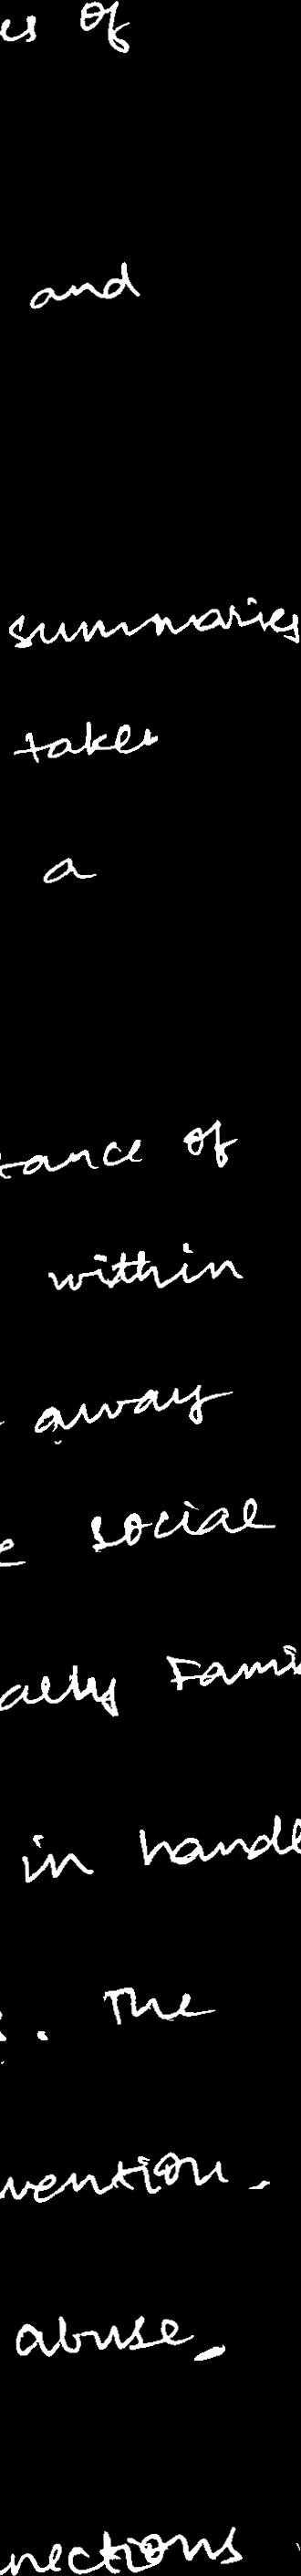 es of
and
summaries
takes
a
tance of
within
away
e social
ally Fami
in handl
. The
vention.
abuse,
nections